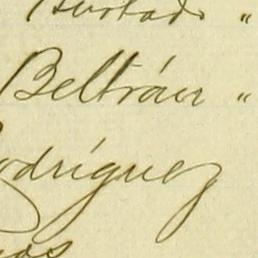 Hurtado "
Beltrán "
odríguez